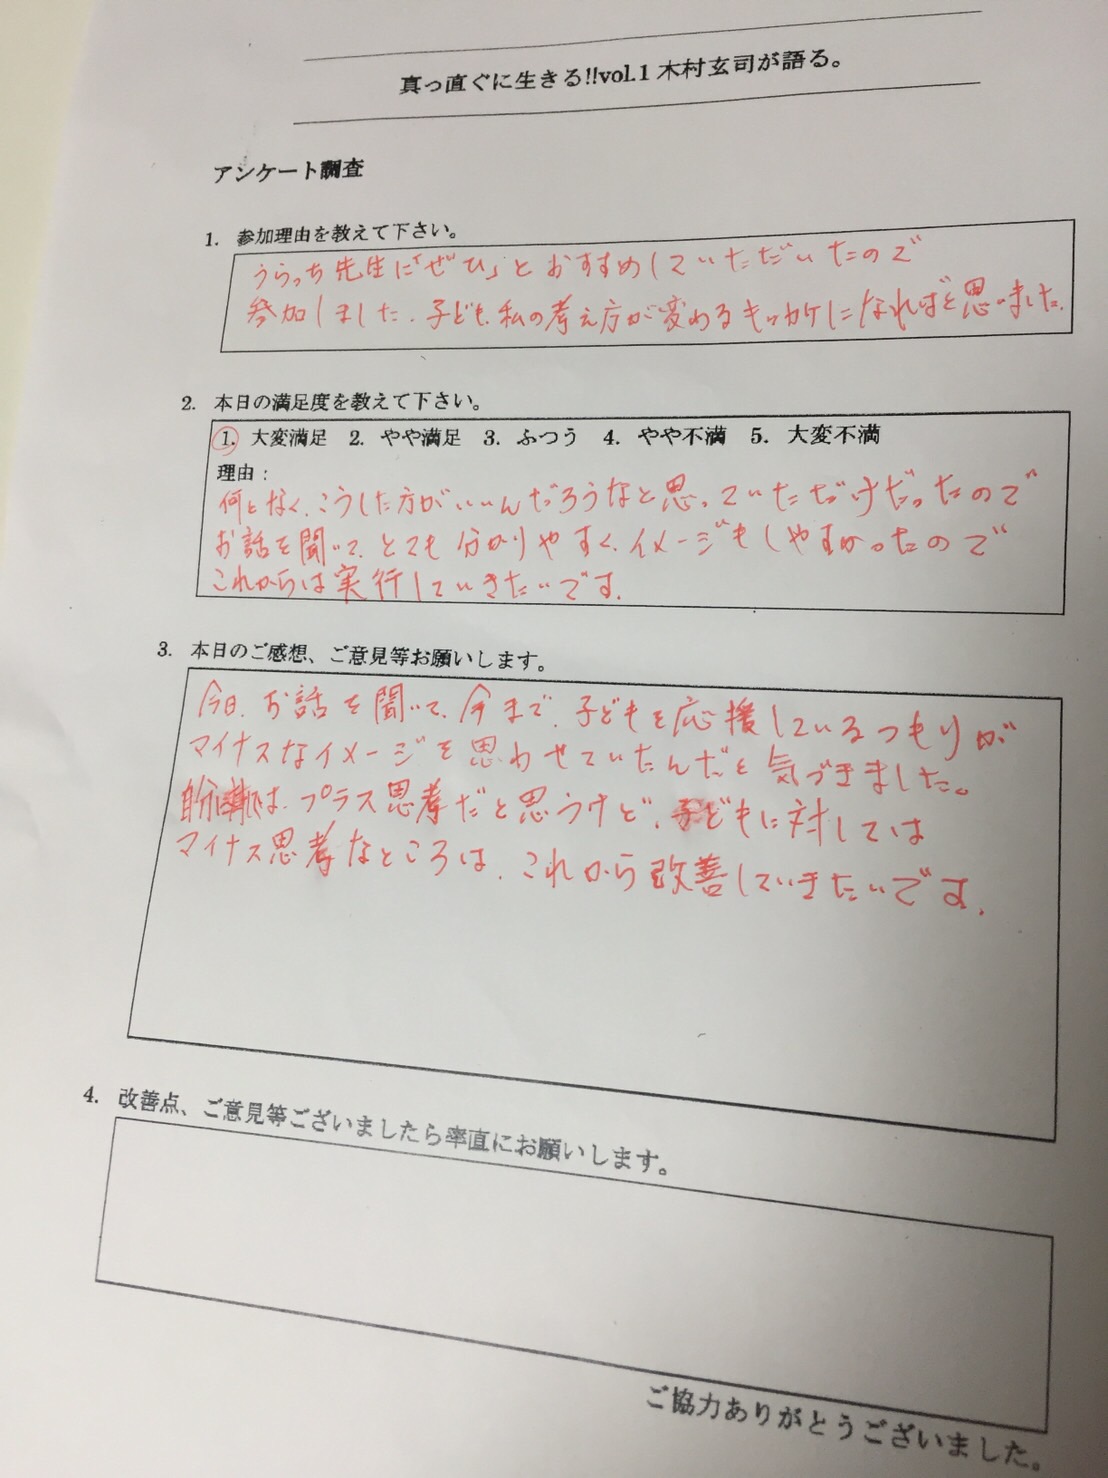 真っ直ぐに生きる!!vol.1 木村玄司が語る。
アンケート調査
1. 参加理由を教えて下さい。
うらっち先生に「ぜひ」とおすすめしていただいたので
参加しました。子ども、私の考え方が変わるキッカケになればと思いました。
2. 本日の満足度を教えて下さい。
1. 大変満足 2. やや満足 3. ふつう 4. やや不満 5. 大変不満
理由：
何となく、こうした方がいいんだろうなと思っていただけだったので
お話を聞いて、とても分かりやすく、イメージもしやすかったので
これからは実行していきたいです。
3. 本日のご感想、ご意見等お願いします。
今日、お話を聞いて、今まで、子どもを応援しているつもりが
マイナスなイメージを思わせていたんだと気づきました。
は、プラス思考だと思うけど、子どもに対しては
マイナス思考なところは、これから改善していきたいです。
4. 改善点、ご意見等ございましたら率直にお願いします。
ご協力ありがとうございました。